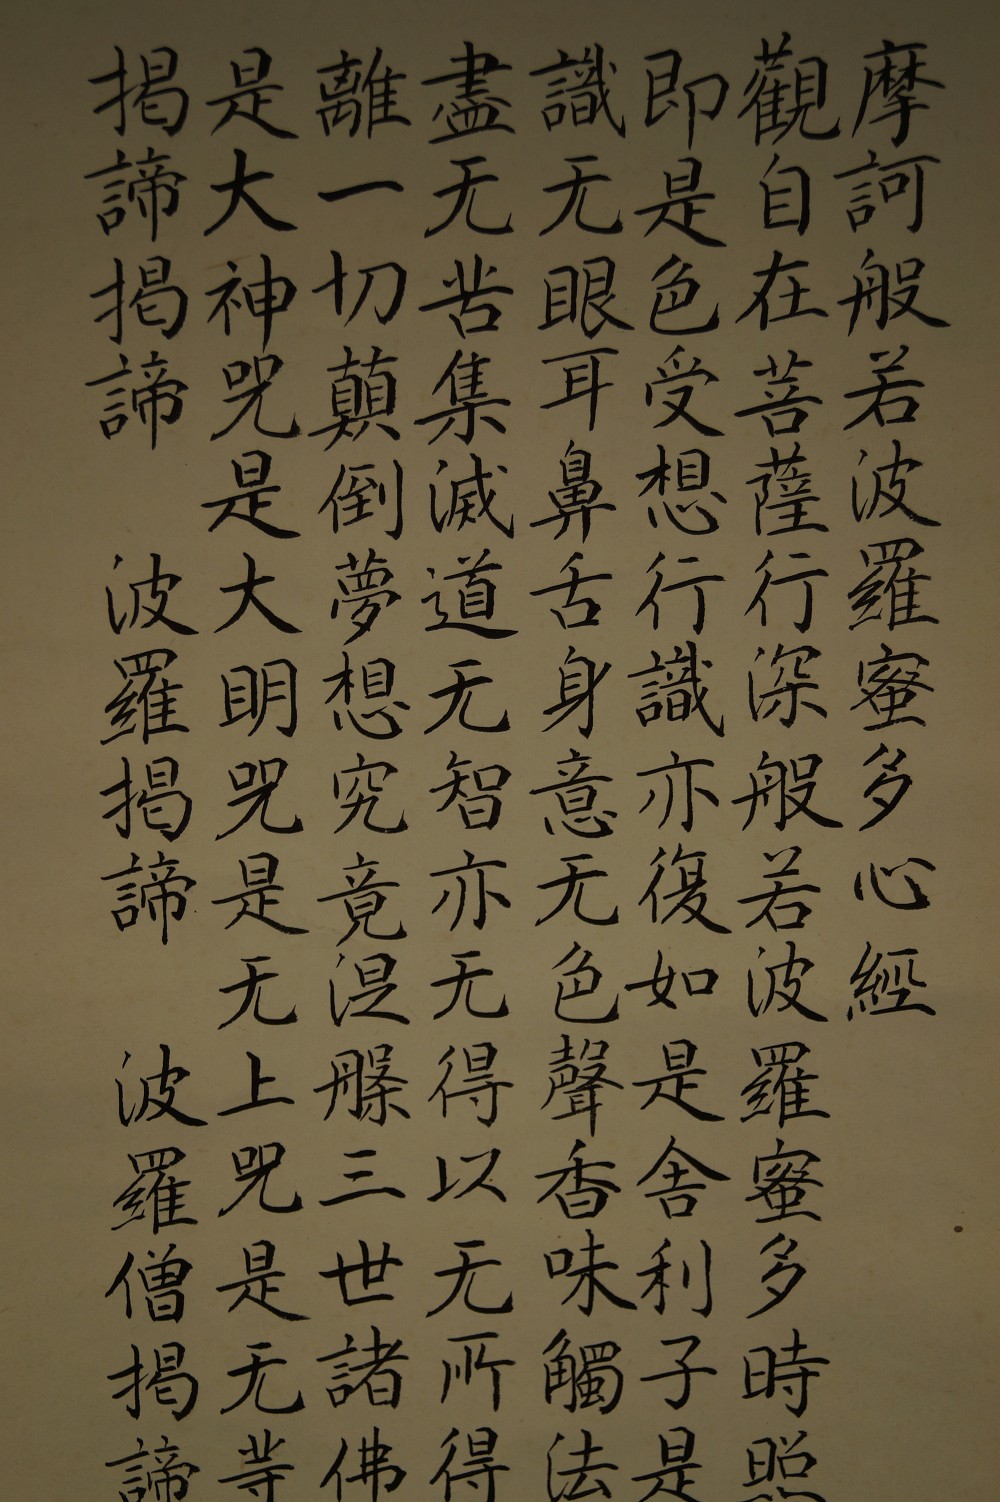 摩訶般若波羅蜜多心經
觀自在菩薩行深般若波羅蜜多時照
即是色受想行識亦復如是舍利子是
識无眼耳鼻舌身意无色聲香味觸法
盡无苦集滅道无智亦无得以无所得
離一切顛倒夢想究竟涅槃三世諸佛
是大神咒是大明咒是无上咒是无等
揭諦揭諦　波羅揭諦　波羅僧揭諦